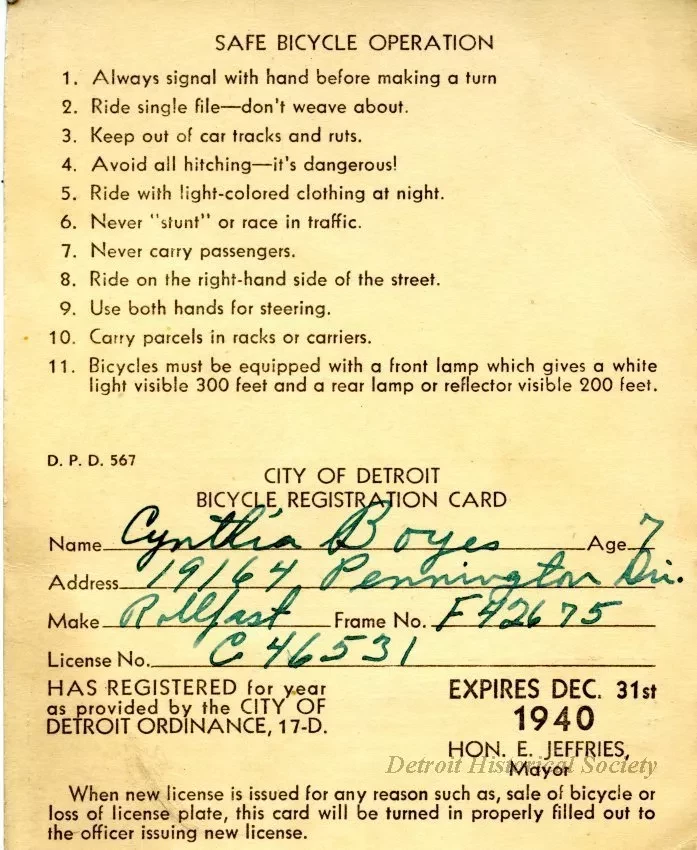 SAFE BICYCLE OPERATION
1. Always signal with hand before making a turn
2. Ride single file—don't weave about.
3. Keep out of car tracks and ruts.
4. Avoid all hitching—it's dangerous!
5. Ride with light-colored clothing at night.
6. Never "stunt" or race in traffic.
7. Never carry passengers.
8. Ride on the right-hand side of the street.
9. Use both hands for steering.
10. Carry parcels in racks or carriers.
11. Bicycles must be equipped with a front lamp which gives a white
light visible 300 feet and a rear lamp or reflector visible 200 feet.
D. P. D. 567
CITY OF DETROIT
BICYCLE REGISTRATION CARD
Name Cynthia Boyes Age 7
Address 19164 Pennington Dr.
Make Rollfast Frame No. F42675
License No. C46531
HAS REGISTERED for year
as provided by the CITY OF
DETROIT ORDINANCE, 17-D.
EXPIRES DEC. 31st
1940
HON. E. JEFFRIES,
Mayor
Detroit Historical Society
When new license is issued for any reason such as, sale of bicycle or
loss of license plate, this card will be turned in properly filled out to
the officer issuing new license.